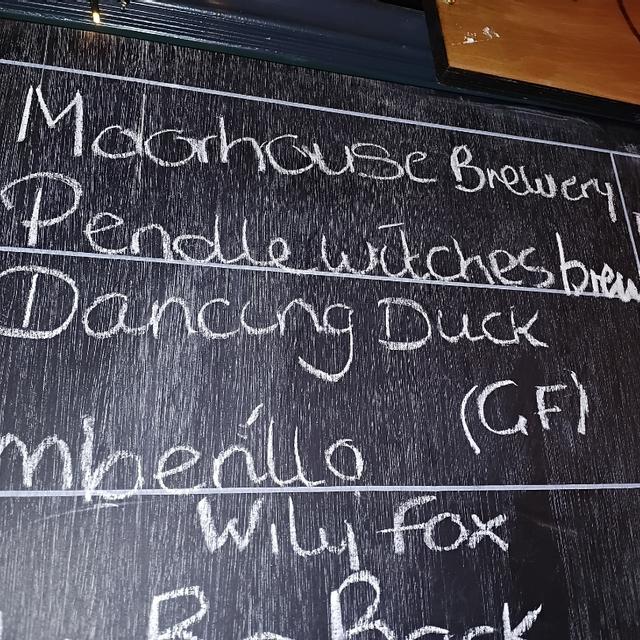 Moorhouse Brewery
Pendle witches brew
Dancing Duck
(GF)
Wily fox